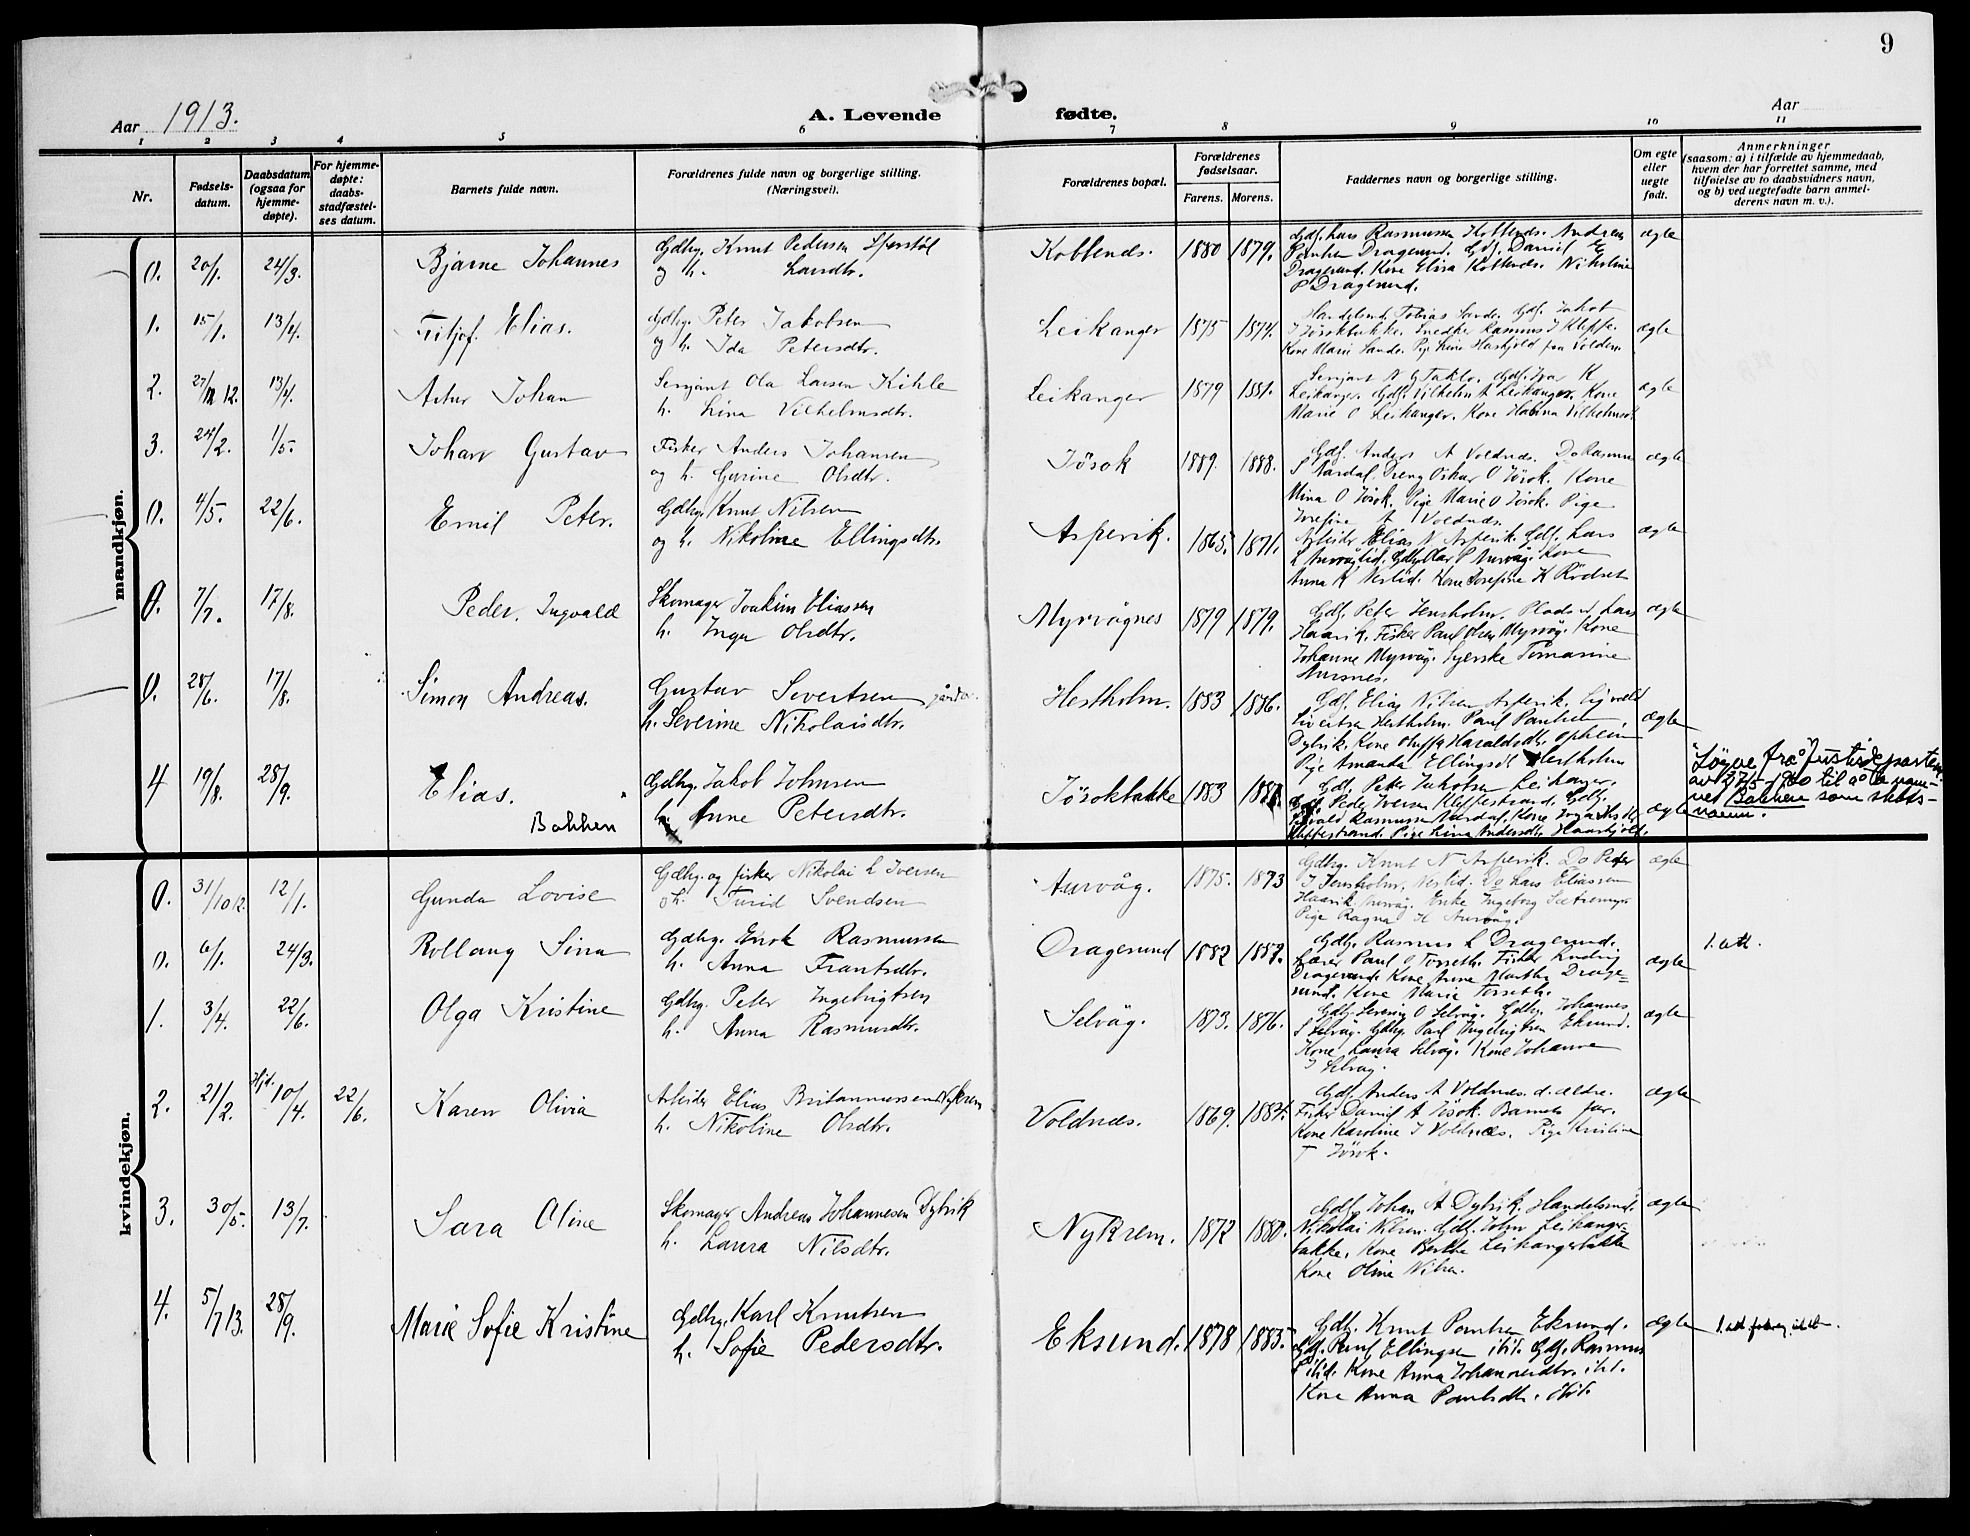 9
Aar 1913.
A. Levende fødte.
Aar
1 2 3 4 5 6 7 8 9 10 11
Nr.
Fødsels-
datum.
Daabsdatum
(ogsaa for
hjemme-
døpte).
For hjemme-
døpte:
daabs-
stadfæstel-
ses datum.
Barnets fulde navn.
Forældrenes fulde navn og borgerlige stilling.
(Næringsvei).
Forældrenes bopæl.
Forældrenes
fødselsaar.
Farens. Morens.
Faddernes navn og borgerlige stilling.
Om egte
eller
uegte
født.
Anmerkninger
(saasom: a) i tilfælde av hjemmedaab,
hvem der har forrettet samme, med
tilføielse av to daabsvidners navn,
og b) ved uegtefødte barn anmel-
derens navn m. v.).
mandkjøn.
0. 20/1. 24/3. Bjarne Johannes
Gdbg. Knut Pedersen
og h. Larsdtr.
Kobbends. 1880 1879.
Gdf. Lars Rasmussen Kobbends. Andreas
Paulsen Dragesund. Gdf. Daniel E
Dragesund. Kone Elisa Kobbends. Nikoline
P Dragesund.
ægte
1. 15/1. 13/4. Fritjof Elias.
Gdbg. Peter Jakobsen
og h. Ida Petersdtr.
Leikanger 1875 1874.
Handelsmd. Tobias Sande. Gdf. Jakob
J Jøsokbakke. Snedker Rasmus J Kleppe.
Kone Marie Sande. Pige Line Haskjold
ægte
2. 27/12 12. 13/4. Artur Johan
Serjant Ola Larsen Kihle
h. Lina Vilhelmsdtr.
Leikanger 1879 1881.
Serjant N G Takle. Gdf. Ivar K
Leikanger. Gdf. Vilhelm A Leikanger. Kone
Marie O Leikanger. Kone Hanna Vilhelmsdt.
ægte
3. 24/2. 1/5. Johan Gustav
Fisker Anders Johansen
og h. Gurine Olsdtr.
Jøsok 1889. 1888.
Gdf. Anders A Voldnæs. Do Rasmus
S Aardal. Dreng Oskar O Jøsok. Kone
Mina O Jøsok. Pige Marie O Jøsok. Pige
Josefine A Voldnæs.
ægte
0. 4/5. 22/6. Emil Peter.
Gdbg. Knut Nilsen
og h. Nikoline Ellingsdtr.
Aspevik. 1865. 1871.
Arbeider Elias N Aspevik. Gdf. Lars
L Aurvåglid. Gdbg. Olar P Aurvåg. Kone
Anna K Neslid. Kone Josefine K Rødset
ægte
0. 7/7. 17/8. Peder Ingvald
Skomager Joakim Eliassen
h. Inga Olsdtr.
Myrvågnes 1879 1879.
Gdf. Peter Jensholm. Lars
Haavik. Fisker Paul Olsen Myrvåg. Kone
Johanne Myrvåg. Syerske Tomasine
Aursnes.
ægte
0. 28/6. 17/8. Simon Andreas.
Gustav Sivertsen
h. Severine Nikolaisdtr.
Hestholm. 1883 1886.
Gdf. Elias Nilsen Aspevik.
Sivertsen Hestholm. Paul Paulsen
Dybvik. Kone Oluffa Haraldsdtr. Opheim
Pige Amanda Ellingsdt. Hestholm
ægte
4 19/8. 28/9. Elias.
Bakken
Gdbg. Jakob Johnsen
h. Anne Petersdtr.
Jøsokbakke 1883
Gdf. Peter Jakobsen Leikanger.
Gdf. Peder Iversen Kleppestrand. Gdbg.
Rasmussen Aardal. Kone Inga
Kleppestrand. Pige Lina Andersdt. Haaskjold.
ægte
"Løyve frå Justisdeparten.
av 27/5-1940 til å ta nam-
net Bakken som slekts-
namn.
kvindekjøn.
0. 31/10 12. 12/1. Gunda Lovise
Gdbg. og fisker Nikolai L Iversen
h. Turid Svendsen
Aurvåg. 1875. 1873
Gdbg. Knut N Aspevik. Do Peter
J Jensholm, Neslid. Do Lars Eliassen
Haavik, Aurvåg. Enke Ingeborg Sætremyr
Pige Ragna H Aurvåg.
ægte
0. 6/1. 24/3. Rollaug Sina
Gdbg. Enok Rasmussen
h. Anna Frantsdtr.
Dragesund 1882
Gdbg. Rasmus L Dragesund.
Lærer Paul O Torseth. Fisker Ludvig
Dragesund. Kone Anne Martha Drage-
sund. Kone Marie Torseth.
ægte
1. att.
1. 3/4. 22/6. Olga Kristine
Gdbg. Peter Ingebrigtsen
h. Anna Rasmusdtr.
Selvåg. 1873. 1876.
Gdbg. Severin O Selvåg. Gdbg. Johannes
S Selvåg. Gdbg. Paul Ingebrigtsen Eksund.
Kone Laura Selvåg. Kone Johanne
J Selvåg.
ægte
2. 21/2. Hjd. 10/4. 22/6. Karen Olivia
Arbeider Elias Britannussen Nykrem
h. Nikoline Olsdtr.
Voldnæs. 1869. 1884.
Gdf. Anders A Voldnæs d. ældre.
Fisker Daniel A Jøsok. Barnets far.
Kone Karoline J Voldnæs. Pige Kristine
T Jøsok.
ægte
3. 30/5. 13/7. Sara Oline
Skomager Andreas Johannesen Dybvik
h. Laura Nilsdtr.
Nykrem. 1872 1880.
Gdf. Johan A Dybvik. Handelsmd.
Nikolai Nilsen. Gdf. John Leikanger-
bakke. Kone Berthe Leikangerbakke
Kone Oline Nilsen.
ægte
4. 5/7 13. 28/9. Marie Sofie Kristine
Gdbg. Karl Knutsen
h. Sofie Pedersdtr.
Eksund. 1878 1885.
Gdbg. Knut Paulsen Eksund.
Gdf. Paul Ellingsen ibid. Gdf. Rasmus
P ibid. Kone Anna Johannesdtr. ibid.
Kone Anna Paulsdtr. ibid.
ægte
1. att